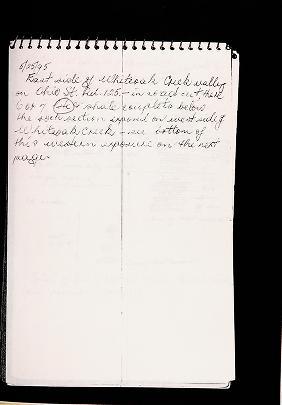 6/25/95
East side of Whiteoak Creek valley
on Ohio St. Rt. 125. - in road cut there
6 or 7 shale couplets below
the section exposed on west side of
Whiteoak Creek - see bottom of
this western exposure on the next
page.